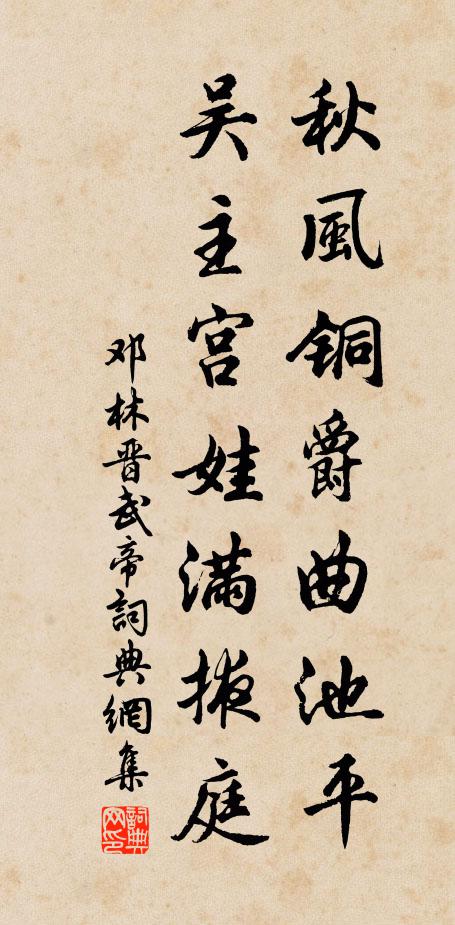 秋風铜爵曲池平
吴主宫娃满掖庭
邓林晋武帝詞典網集
詞典网印